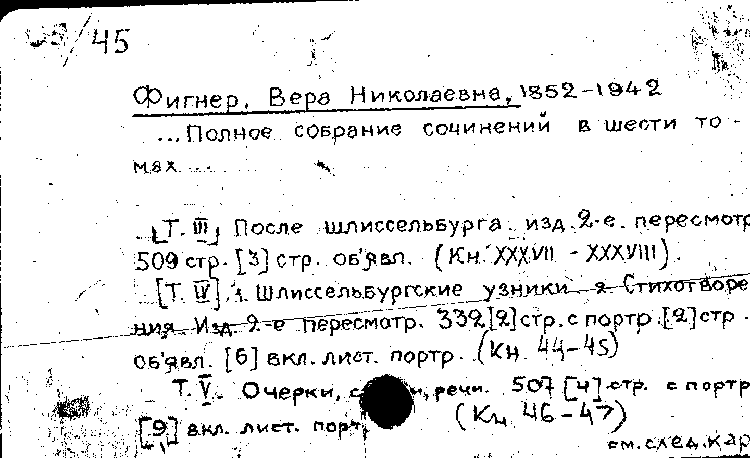 /45
Фигнер, Вера Николаевна, 1852-1942
...Полное собрание сочинений в шести то-
мах....
[Т. III] После шлиссельбурга. изд. 2-е. пересмотр
509 стр. [3] стр. об'явл. (Кн. XXXVII - XXXVIII).
[Т. IV], 1. Шлиссельбургские узники. 2. Стихотворе
ния. Изд. 2-е пересмотр. 332 [2] стр. с портр. [2] стр.
об'явл. [6] вкл. лист. портр. (Кн. 44-45)
Т. V. Очерки, речи. 507 [4] стр. с портр
[9] вкл. лист. порт (Кн 46-47)
см. след. кар